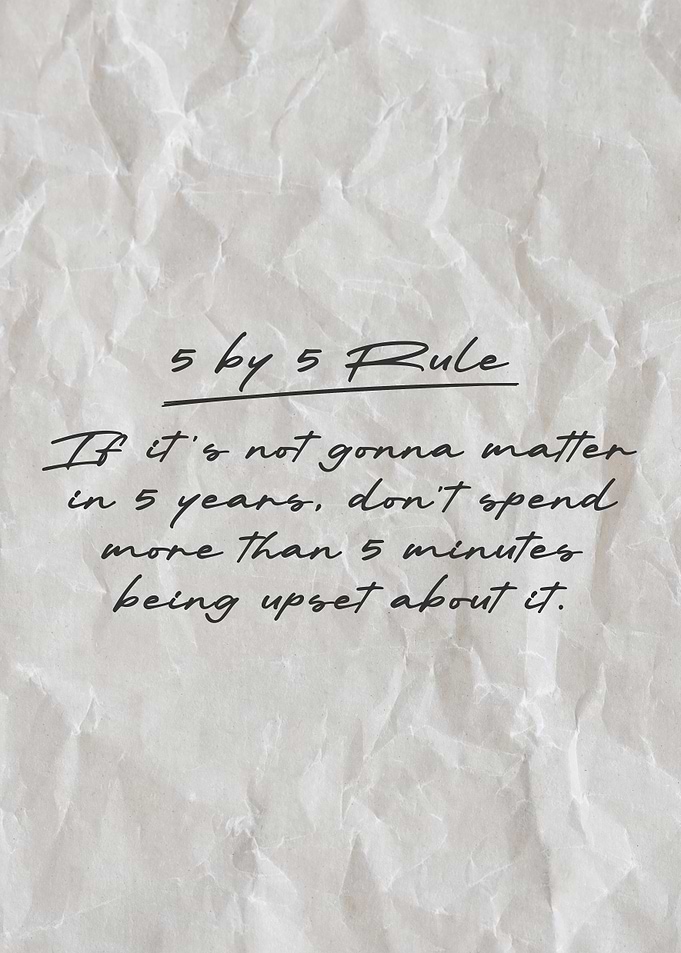 5 by 5 Rule
If it's not gonna matter
in 5 years, don't spend
more than 5 minutes
being upset about it.